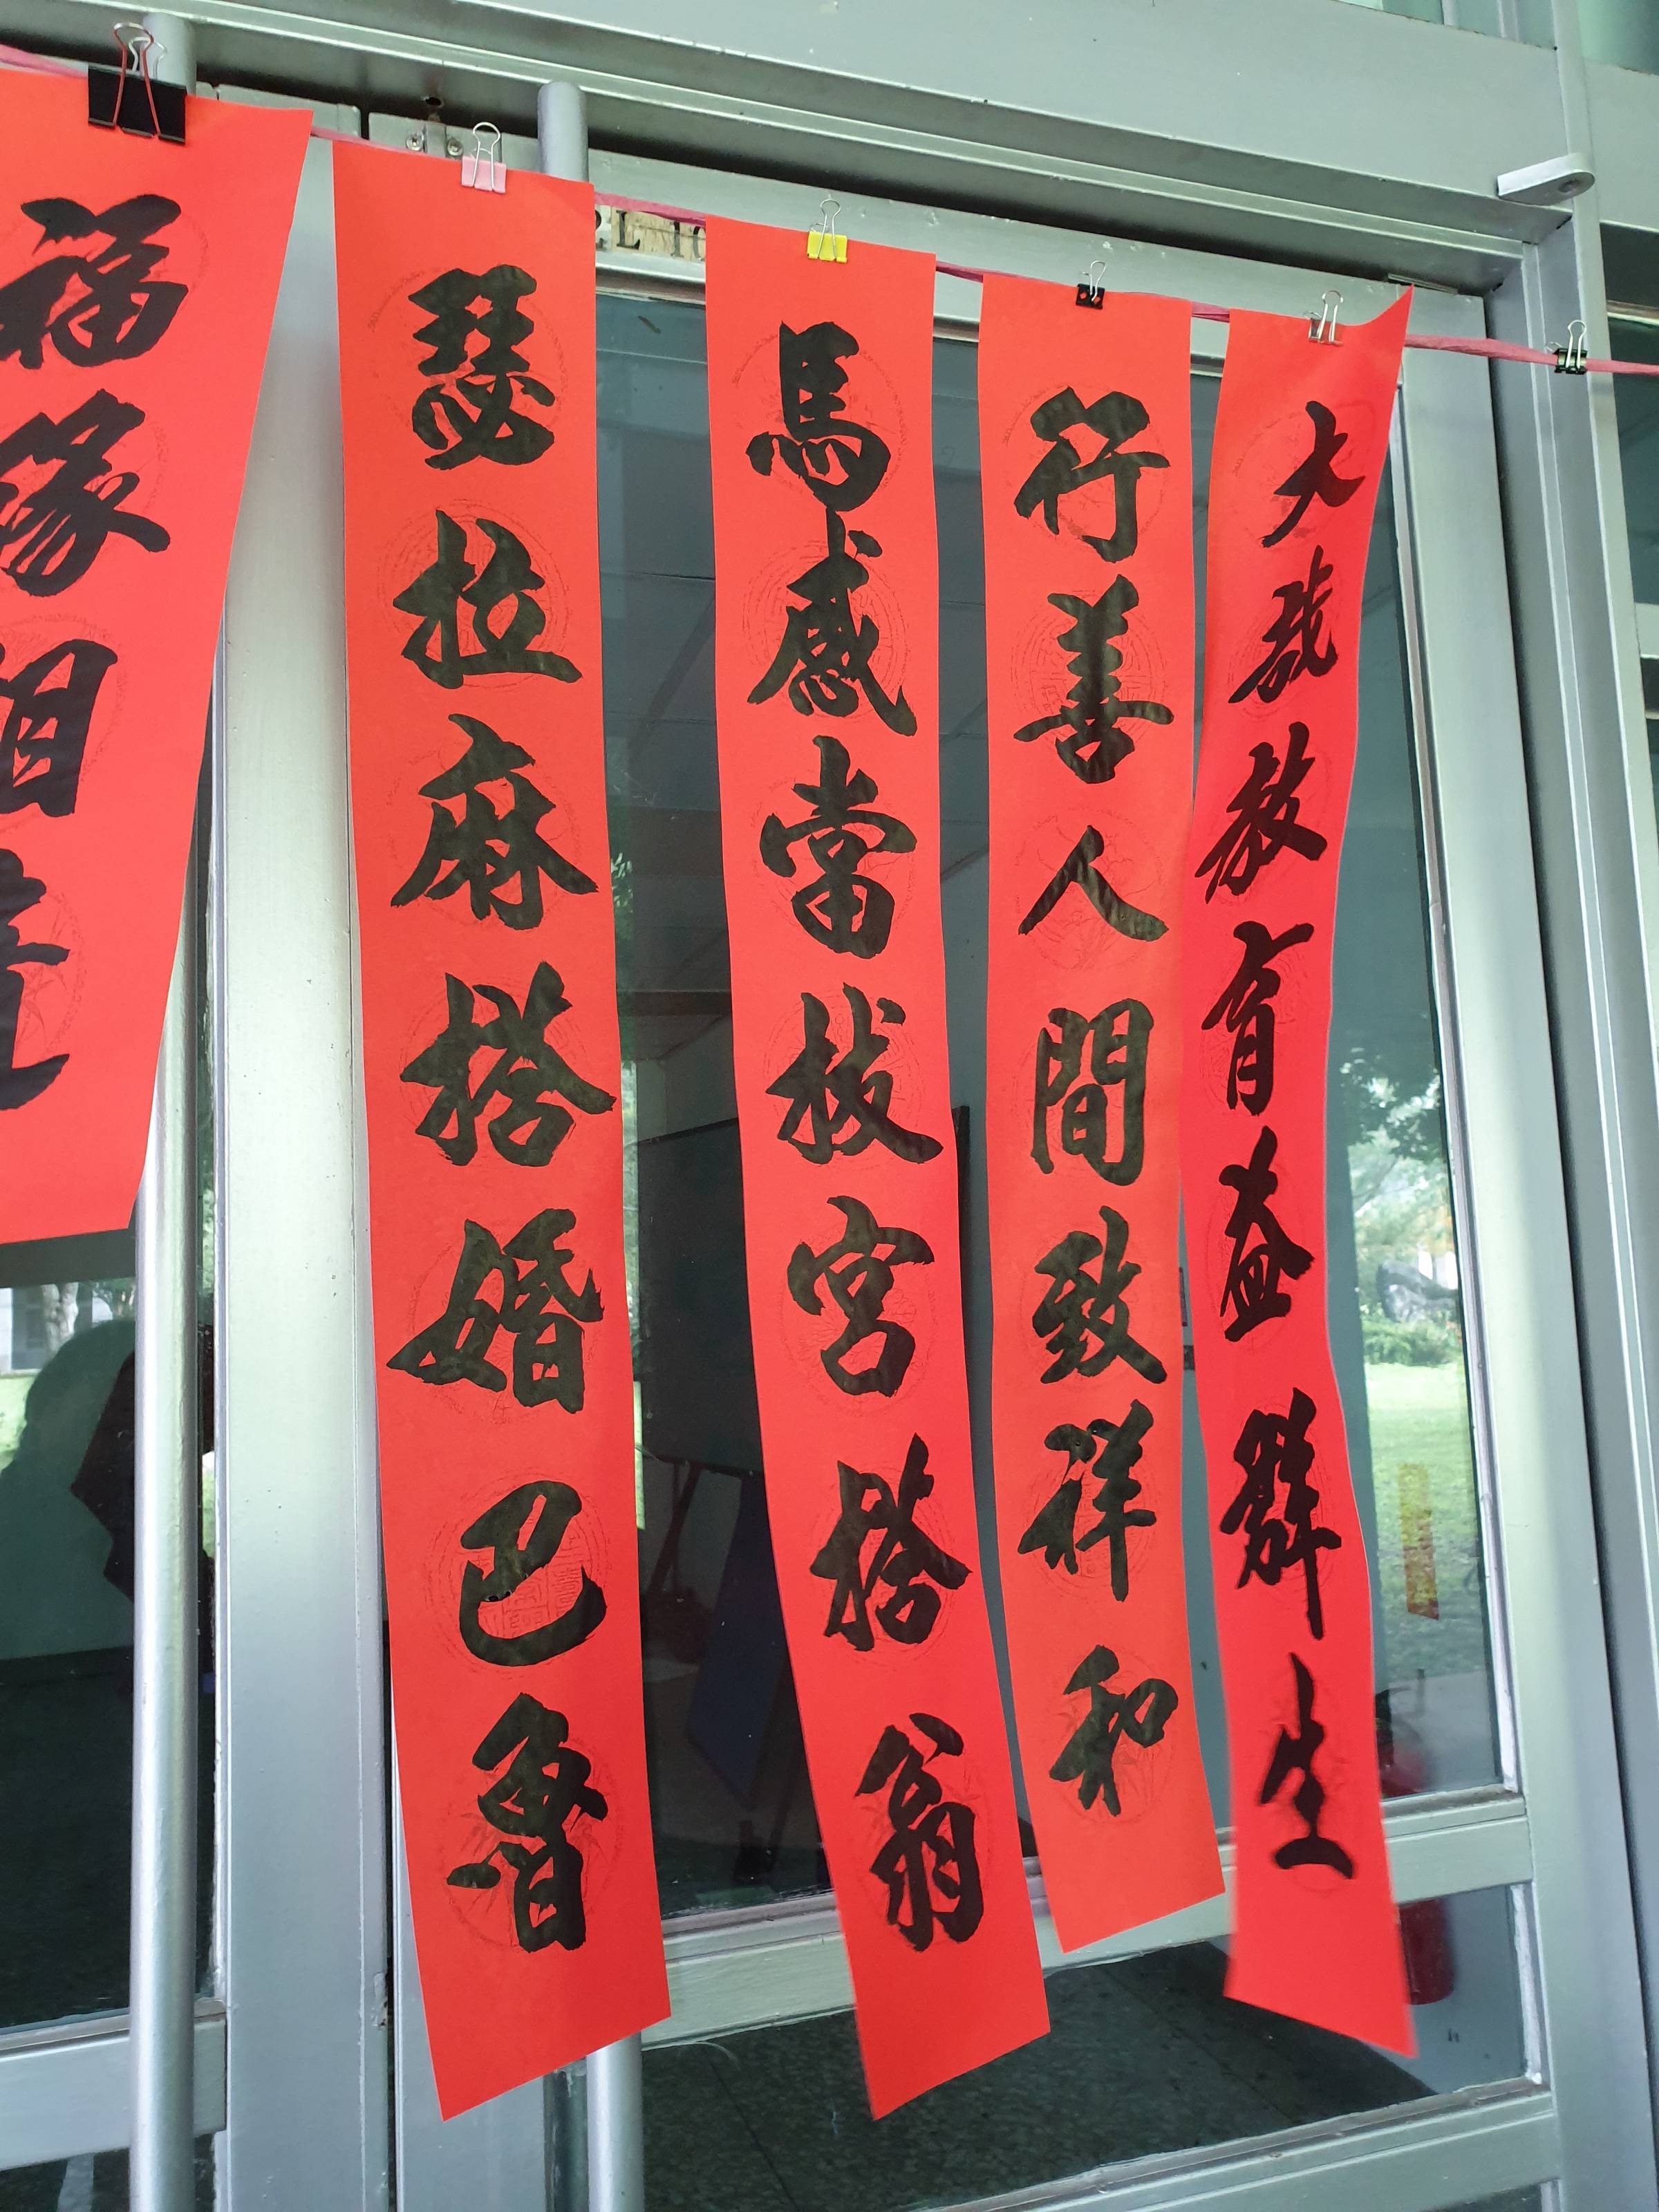 大哉教育益群生
行善人間致祥和
馬感當拔宮搭翁
瑟拉麻搭婚巴魯
福緣相